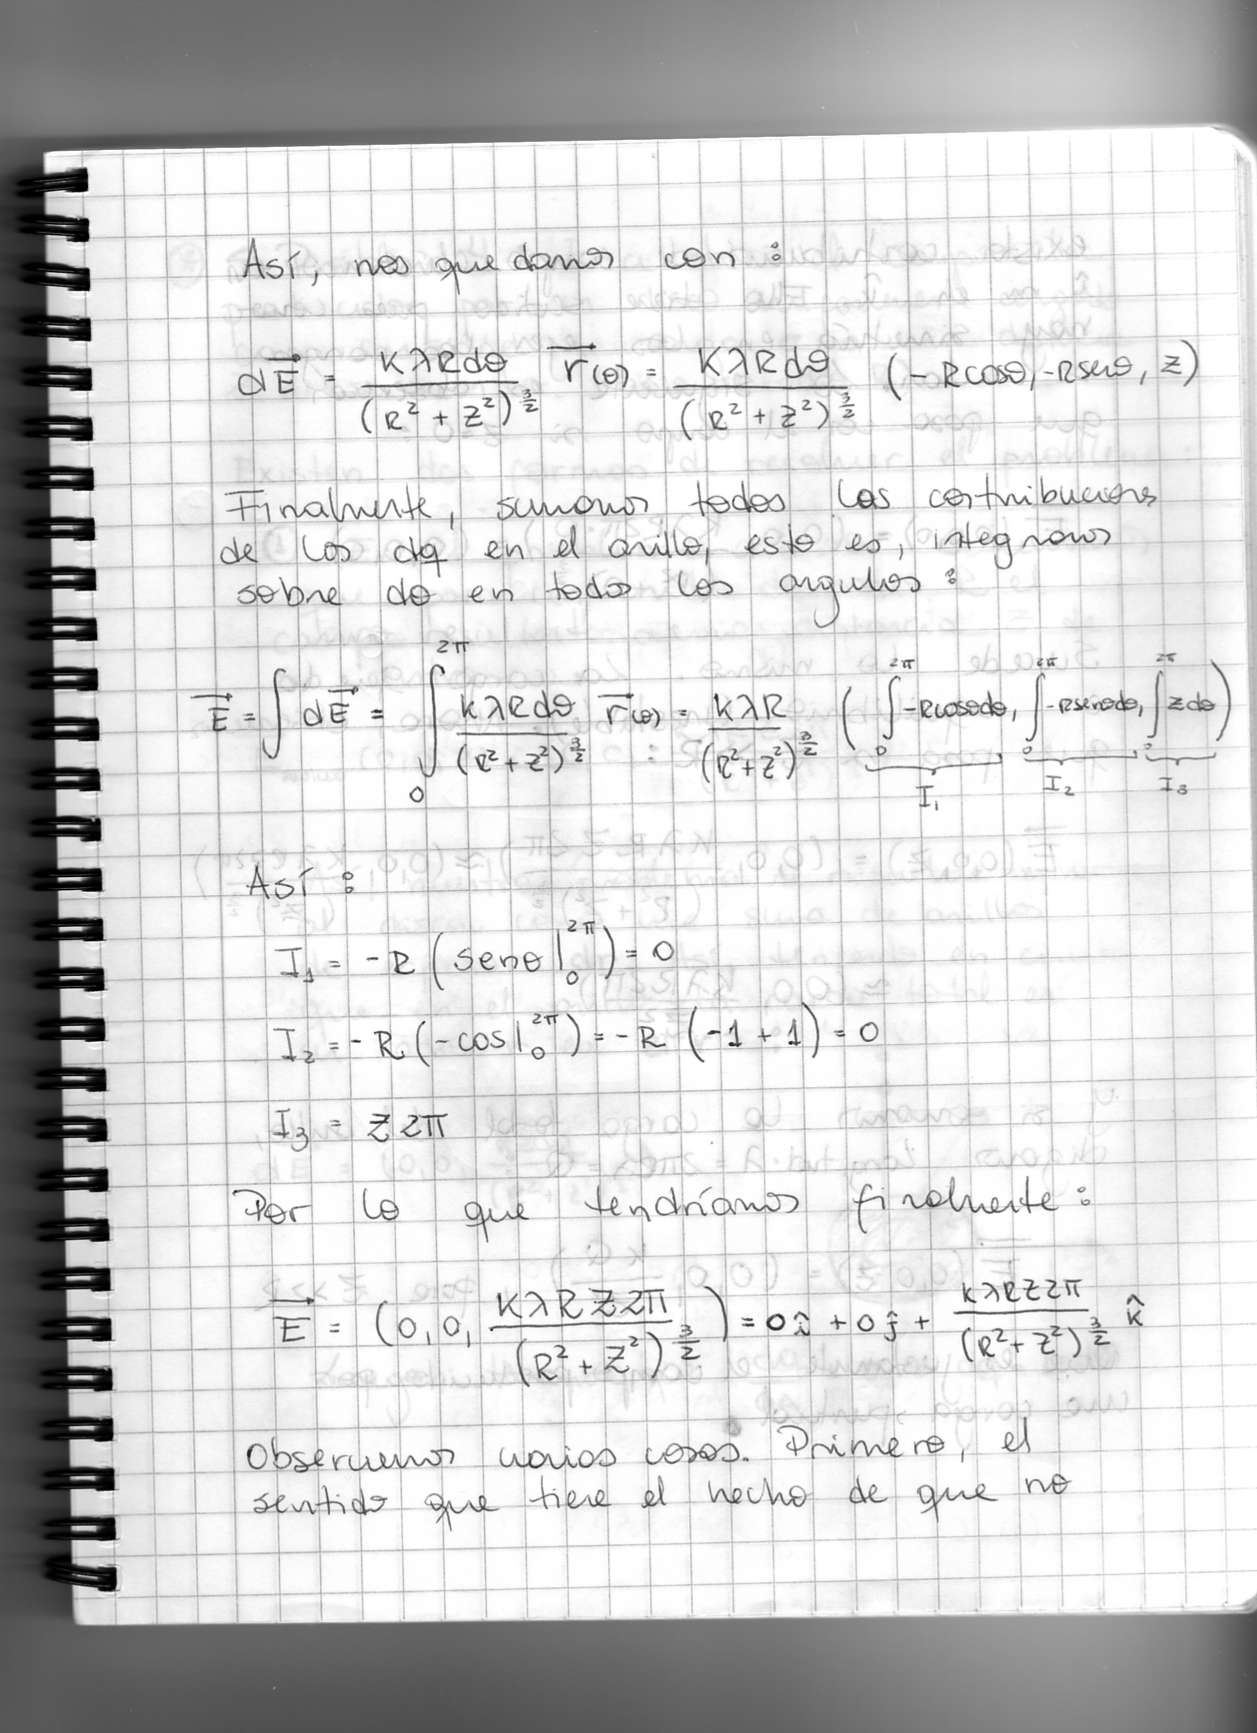 Así, nos quedamos con:
dE⃗ = KλRdθ/(R² + z²)^(3/2) r⃗(θ) = KλRdθ/(R² + z²)^(3/2) (-Rcosθ, -Rsenθ, z)
Finalmente, sumamos todas las contribuciones
de los dq en el anillo, esto es, integramos
sobre dθ en todos los angulos:
E⃗ = ∫ dE⃗ = ∫₀^2π KλRdθ/(R² + z²)^(3/2) r⃗(θ) = KλR/(R² + z²)^(3/2) (∫₀^2π -Rcosθdθ, ∫₀^2π -Rsenθdθ, ∫₀^2π zdθ)
I₁ I₂ I₃
Así:
I₁ = -R (senθ|₀^2π) = 0
I₂ = -R (-cos|₀^2π) = -R (-1 + 1) = 0
I₃ = z2π
Por lo que tendríamos finalmente:
E⃗ = (0, 0, KλRz2π/(R² + z²)^(3/2)) = 0î + 0ĵ + KλRz2π/(R² + z²)^(3/2) k̂
Observemos varias cosas. Primero, el
sentido que tiene el hecho de que no